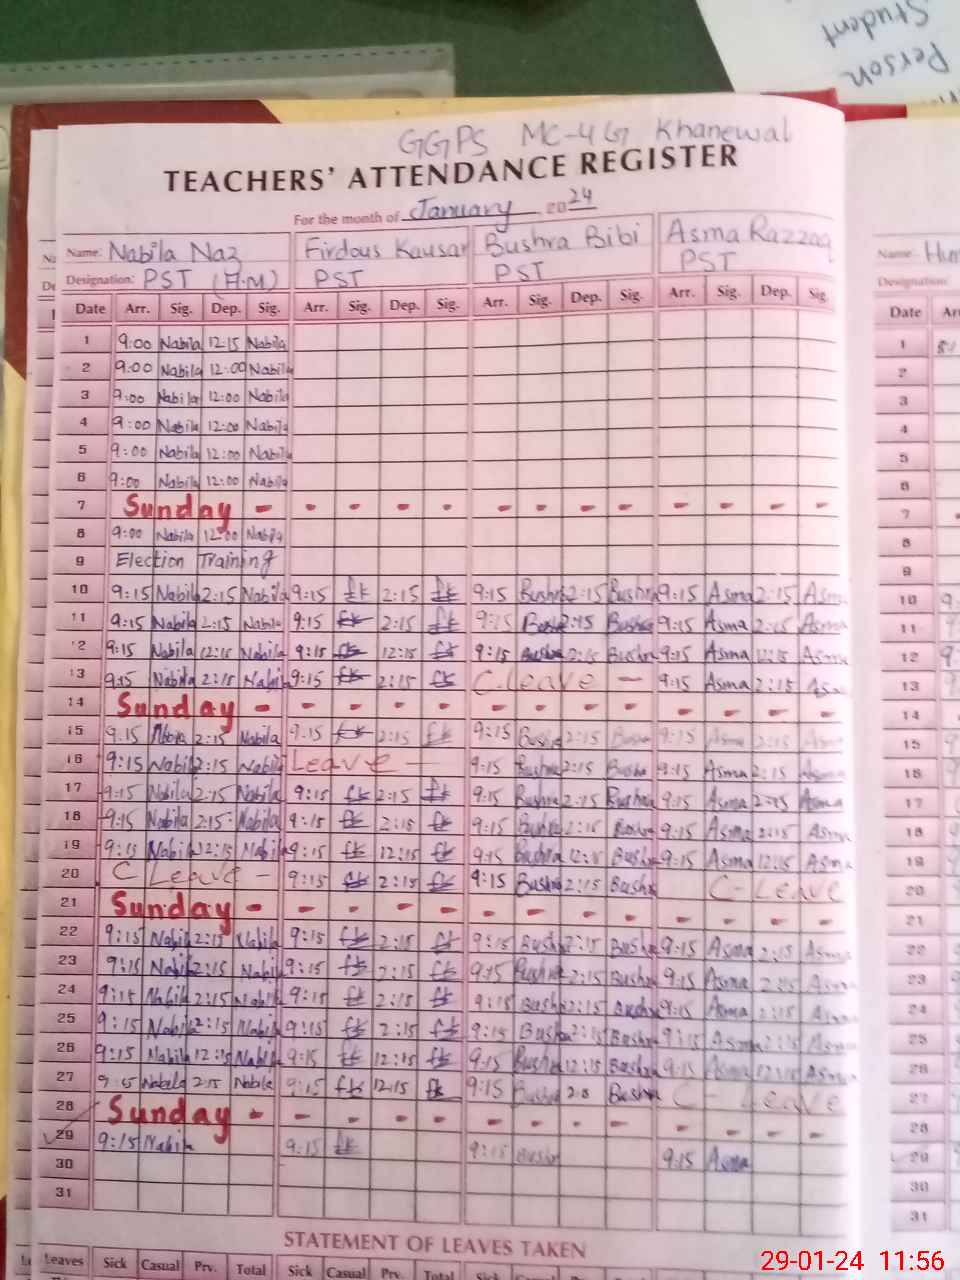 Student
Person
GGPS MC-4 G Khanewal
TEACHERS' ATTENDANCE REGISTER
For the month of January 2024
Name: Nabila Naz Firdous Kausar Bushra Bibi Asma Razzaq Name:
Designation: PST (H.M) PST PST PST Designation:
Date Arr. Sig. Dep. Sig. Arr. Sig. Dep. Sig. Arr. Sig. Dep. Sig. Arr. Sig. Dep. Sig. Date
1 9:00 Nabila 12:15 Nabila 1
2 9:00 Nabila 12:00 Nabila 2
3 9:00 Nabila 12:00 Nabila 3
4 9:00 Nabila 12:00 Nabila 4
5 9:00 Nabila 12:00 Nabila 5
6 9:00 Nabila 12:00 Nabila 6
7 Sunday - - - - - - - - - - - - - 7
8 9:00 Nabila 12:00 Nabila 8
9 Election Training 9
10 9:15 Nabila 2:15 Nabila 9:15 fk 2:15 fk 9:15 Bushra 2:15 Bushra 9:15 Asma 2:15 Asma 10
11 9:15 Nabila 2:15 Nabila 9:15 fk 2:15 fk 9:15 Bushra 2:15 Bushra 9:15 Asma 2:15 Asma 11
12 9:15 Nabila 12:15 Nabila 9:15 fk 12:15 fk 9:15 Bushra 2:15 Bushra 9:15 Asma 12:15 Asma 12
13 9:15 Nabila 2:15 Nabila 9:15 fk 2:15 fk C.leave - 9:15 Asma 2:15 Asma 13
14 Sunday - - - - - - - - - - - - - 14
15 9:15 Nabila 2:15 Nabila 9:15 fk 2:15 fk 9:15 Bushra 2:15 Bushra 9:15 Asma 2:15 Asma 15
16 9:15 Nabila 2:15 Nabila Leave - 9:15 Bushra 2:15 Bushra 9:15 Asma 2:15 Asma 16
17 9:15 Nabila 2:15 Nabila 9:15 fk 2:15 fk 9:15 Bushra 2:15 Bushra 9:15 Asma 2:15 Asma 17
18 9:15 Nabila 2:15 Nabila 9:15 fk 2:15 fk 9:15 Bushra 2:15 Bushra 9:15 Asma 2:15 Asma 18
19 9:15 Nabila 12:15 Nabila 9:15 fk 12:15 fk 9:15 Bushra Bushra 9:15 Asma 12:15 Asma 19
20 C Leave - 9:15 fk 2:15 fk 9:15 Bushra 2:15 Bushra C-Leave 20
21 Sunday - - - - - - - - - - - - - 21
22 9:15 Nabila 2:15 Nabila 9:15 fk 2:15 fk 9:15 Bushra 2:15 Bushra 9:15 Asma 2:15 Asma 22
23 9:15 Nabila 2:15 Nabila 9:15 fk 2:15 fk 9:15 Bushra 2:15 Bushra 9:15 Asma 2:15 Asma 23
24 9:15 Nabila 2:15 Nabila 9:15 fk 2:15 fk 9:15 Bushra 2:15 Bushra 9:15 Asma 2:15 Asma 24
25 9:15 Nabila 2:15 Nabila 9:15 fk 2:15 fk 9:15 Bushra 2:15 Bushra 9:15 Asma 2:15 Asma 25
26 9:15 Nabila 12:15 Nabila 9:15 fk 12:15 fk 9:15 Bushra 12:15 Bushra 9:15 Asma 12:15 Asma 26
27 9:15 Nabela 2:15 Nabila 9:15 fk 12:15 fk 9:15 Bushra Bushra C-Leave 27
28 Sunday - - - - - - - - - - - - - 28
29 9:15 Nabila 9:15 fk 9:15 Bushra 9:15 Asma 29
30 30
31 31
STATEMENT OF LEAVES TAKEN
Leaves Sick Casual Prv. Total Sick Casual Prv. Total Sick Casual Prv.
29-01-24 11:56